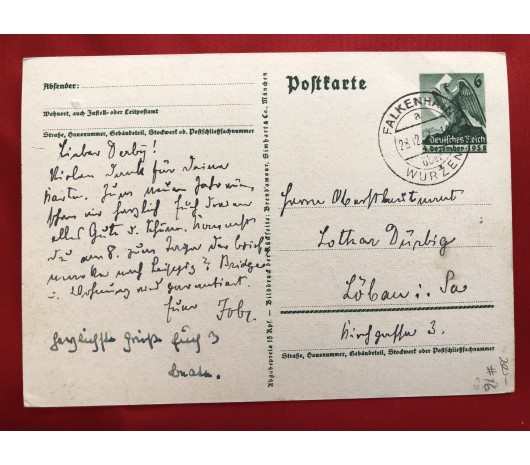 Absender:
Wohnort, auch Zustell- oder Leitpostamt
Straße, Hausnummer, Gebäudeteil, Stockwerk od. Postschließfachnummer
Lieber Derby!
Vielen Dank für Deine
Karte. Zum neuen Jahr wün
schen wir herzlich Euch dreien
alles Gute u. Schöne. Kommst
Du am 8. zum Tage des Brief
marke nach Leipzig?
u. Wohnung wird garantiert.
Euer
herzlichste Grüße Euch 3
Abgabepreis 15 Rpf. - Bilddruck der Rückseite: Brend'amour, Simhart & Co. München
Postkarte
6
Deutsches Reich
4. Dezember 1938
FALKENHAIN
über
WURZEN
Herrn Oberstleutnant
Lothar
Löbau i. Sa
Kirchgasse 3.
Straße, Hausnummer, Gebäudeteil, Stockwerk oder Postschließfachnummer
#16